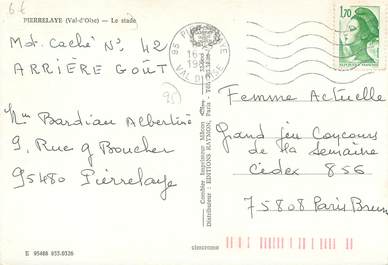 6 €
PIERRELAYE (Val-d'Oise) — Le stade
Mot Caché N° 42
ARRIÈRE GOÛT
95
Mm Bardian Albertine
9, Rue g Boucher
95480 Pierrelaye
E 95488 035.0326
Combier Imprimeur Mâcon
Distributeur : EDITIONS RAYMON, Paris
cimcrome
95 PIERRELAYE
VAL D'OISE
1,70
Femme Actuelle
Grand jeu Coucours
de la Semaine
Cedex 856
75808 Paris Brun